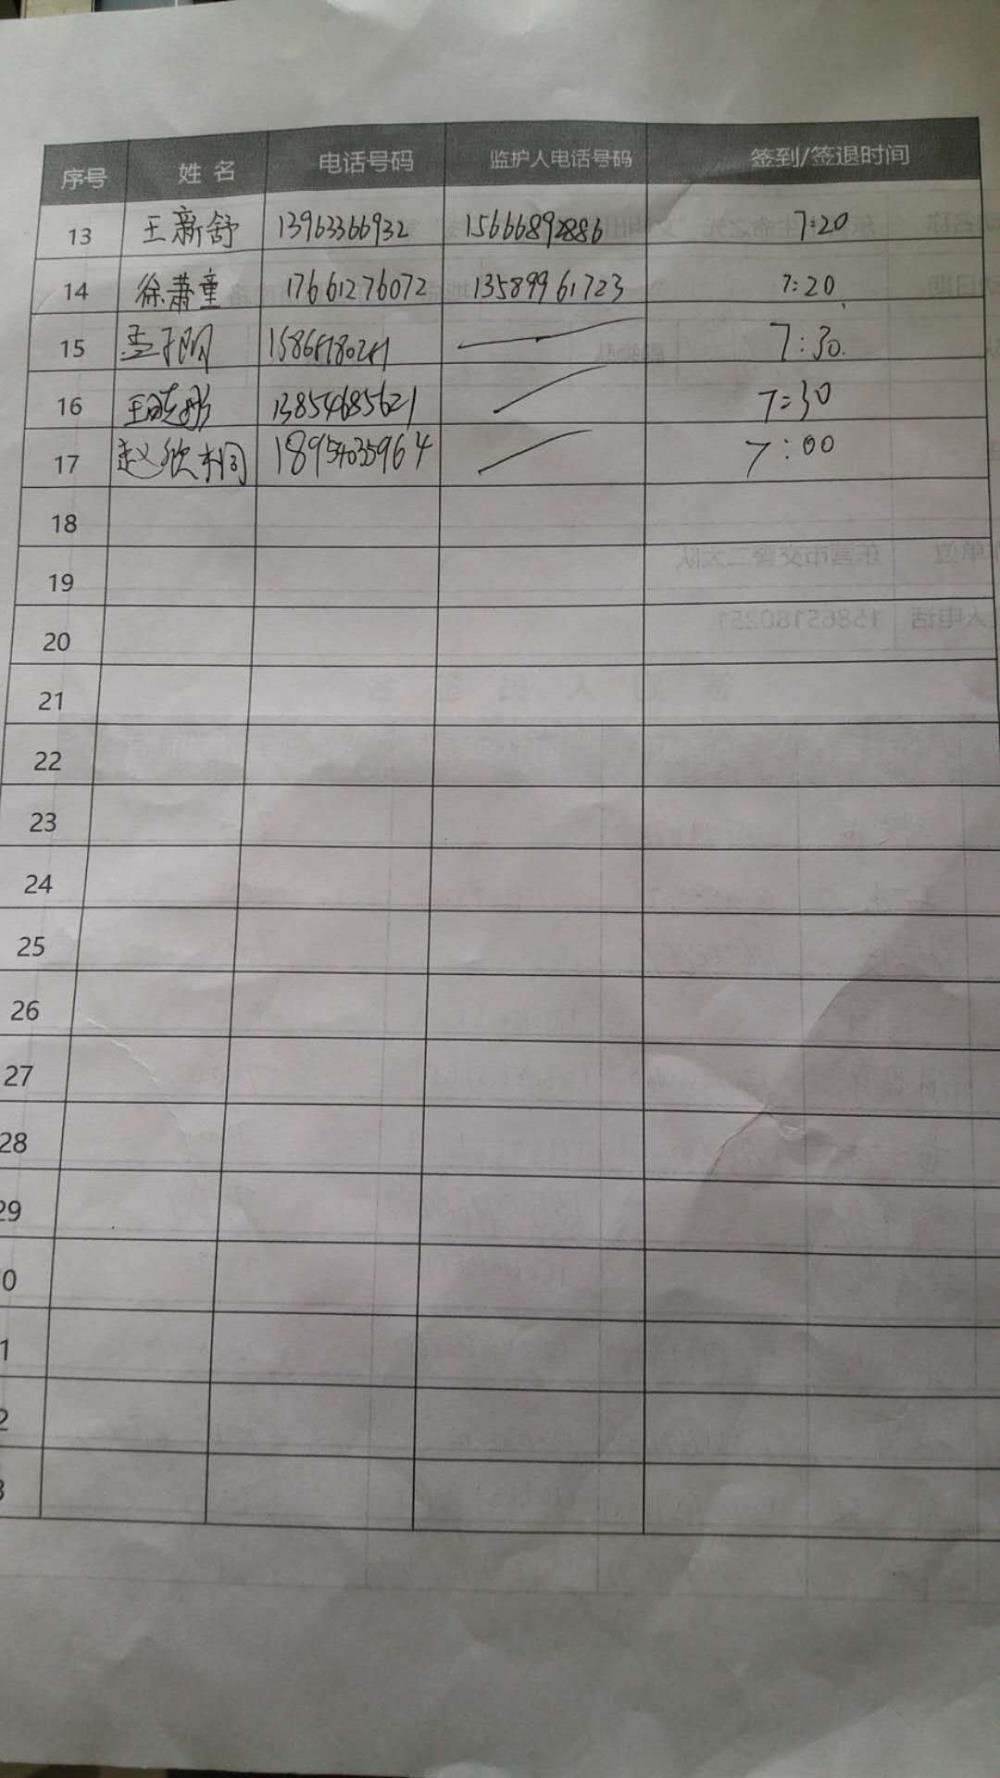 序号 姓名 电话号码 监护人电话号码 签到/签退时间
13 王新舒 13963366932 15666892886 7:20
14 徐萧童 17661276072 13589961723 7:20
15 7:30.
16 13854685621 7:30
17 赵欣桐 18954035964 7:00
18
19
20
21
22
23
24
25
26
27
28
29
0
1
2
3